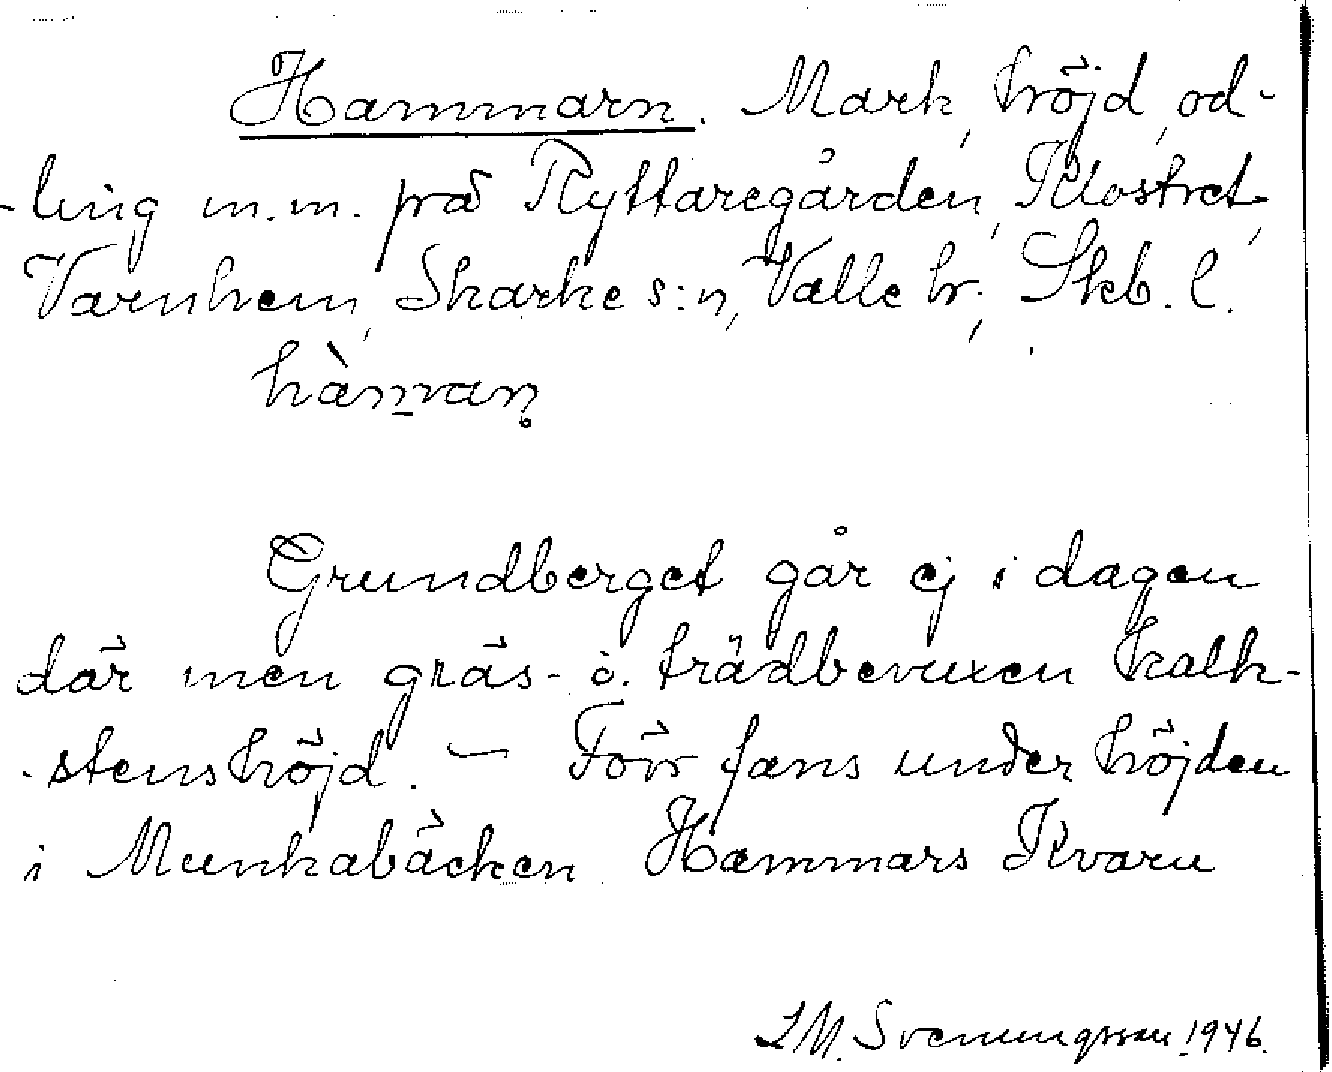 Hammarn. Mark, höjd, od-
-ling m.m. på Ryttaregården, Klostret,
Varnhem, Skarke s:n, Valle hr., Skb. l.
hàm̲ван̥
Grundberget går ej i dagen
där men gräs- o. trädbevuxen kalk-
-stenshöjd. – Förr fans under höjden
i Munkabäcken Hammars Kvarn
L.M. Svenungsson 1946.